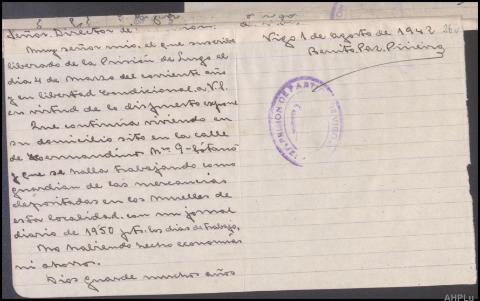 Señor Director de
Muy señor mio, el que suscribe
liberado de la Prisión de Lugo el
dia 4 de Marzo del corriente año
y en libertad condicional, a V.I.
en virtud de lo dispuesto expone
Que continua viviendo en
su domicilio sito en la calle
de Nº 9-
y que se halla trabajando como
guardian de las mercancias
depositadas en los Muelles de
esta localidad con un jornal
diario de 19'50 pts. los dias de trabajo,
No habiendo hecho economias
ni ahorros.
Dios guarde muchos años
Vigo 1 de agosto de 1942
Benito Paz Piñeiro
26
VIGO
AHPLu